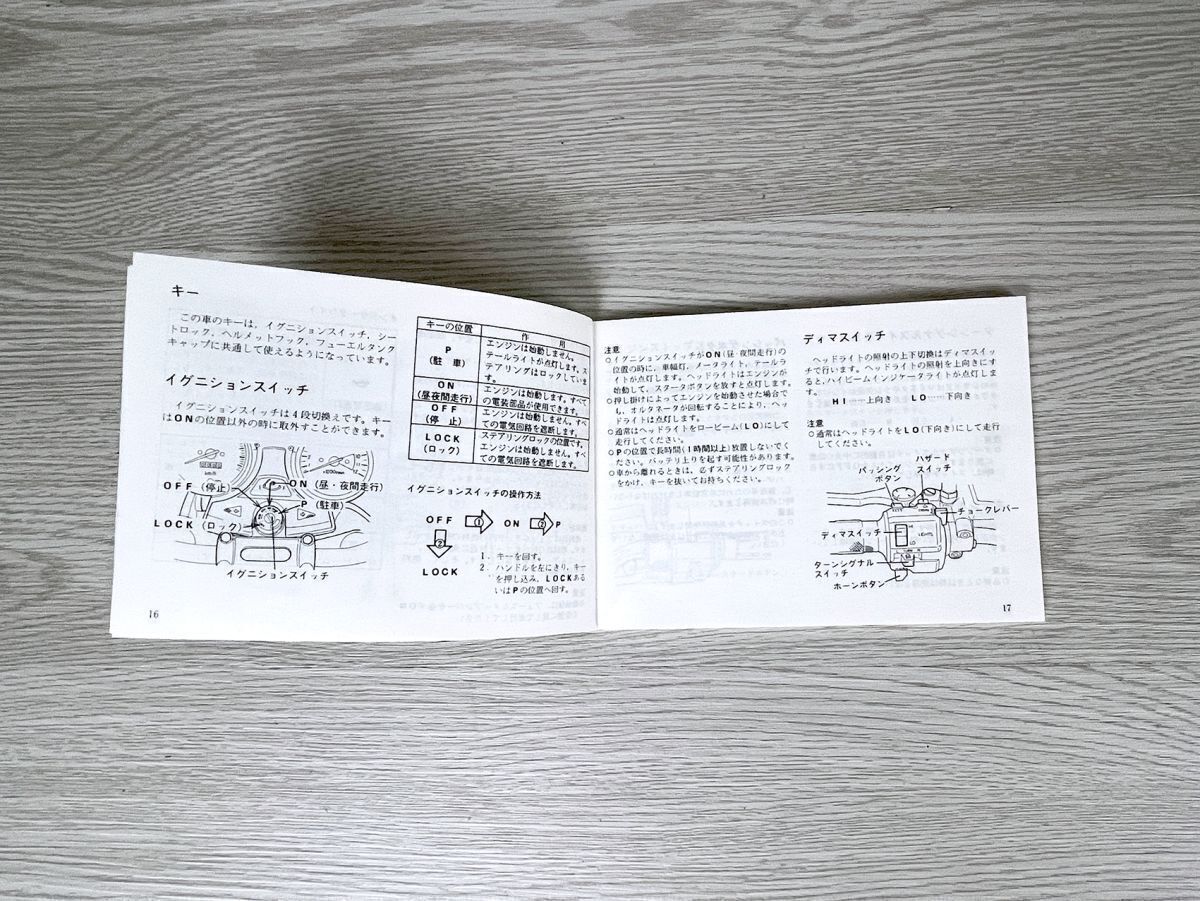 キー
この車のキーは，イグニションスイッチ，シー
トロック，ヘルメットフック，フューエルタンク
キャップに共通して使えるようになっています。
イグニションスイッチ
イグニションスイッチは4段切換えです。キー
はONの位置以外の時に取外すことができます。
OFF（停止）
ON（昼・夜間走行）
P（駐車）
LOCK（ロック）
イグニションスイッチ
16
キーの位置
作 用
P
（駐 車）
エンジンは始動しません。
テールライトが点灯します。ス
テアリングはロックしていま
す。
ON
（昼夜間走行）
エンジンは始動します。すべて
の電装部品が使用できます。
OFF
（停 止）
エンジンは始動しません。すべ
ての電気回路を遮断します。
LOCK
（ロック）
ステアリングロックの位置です。
エンジンは始動しません。すべ
ての電気回路を遮断します。
イグニションスイッチの操作方法
OFF ① ON ② P
②
LOCK
1．キーを回す。
2．ハンドルを左にきり，キー
を押し込み，LOCKある
いはPの位置へ回す。
注意
○イグニションスイッチがON（昼・夜間走行）の
位置の時に，車幅灯，メータライト，テールラ
イトが点灯します。ヘッドライトはエンジンが
始動して，スタータボタンを放すと点灯します。
○押し掛けによってエンジンを始動させた場合で
も，オルタネータが回転することにより，ヘッ
ドライトは点灯します。
○通常はヘッドライトをロービーム（LO）にして
走行してください。
○Pの位置で長時間（1時間以上）放置しないでく
ださい。バッテリ上りを起す可能性があります。
○車から離れるときは，必ずステアリングロック
をかけ，キーを抜いてお持ちください。
ディマスイッチ
ヘッドライトの照射の上下切換はディマスイッ
チで行います。ヘッドライトの照射を上向きにす
ると，ハイビームインジケータライトが点灯しま
す。
HI……上向き LO……下向き
注意
○通常はヘッドライトをLO（下向き）にして走行
してください。
ハザード
スイッチ
パッシング
ボタン
チョークレバー
ディマスイッチ
HI
LO
LIGHTS
ターンシグナル
スイッチ
ホーンボタン
17